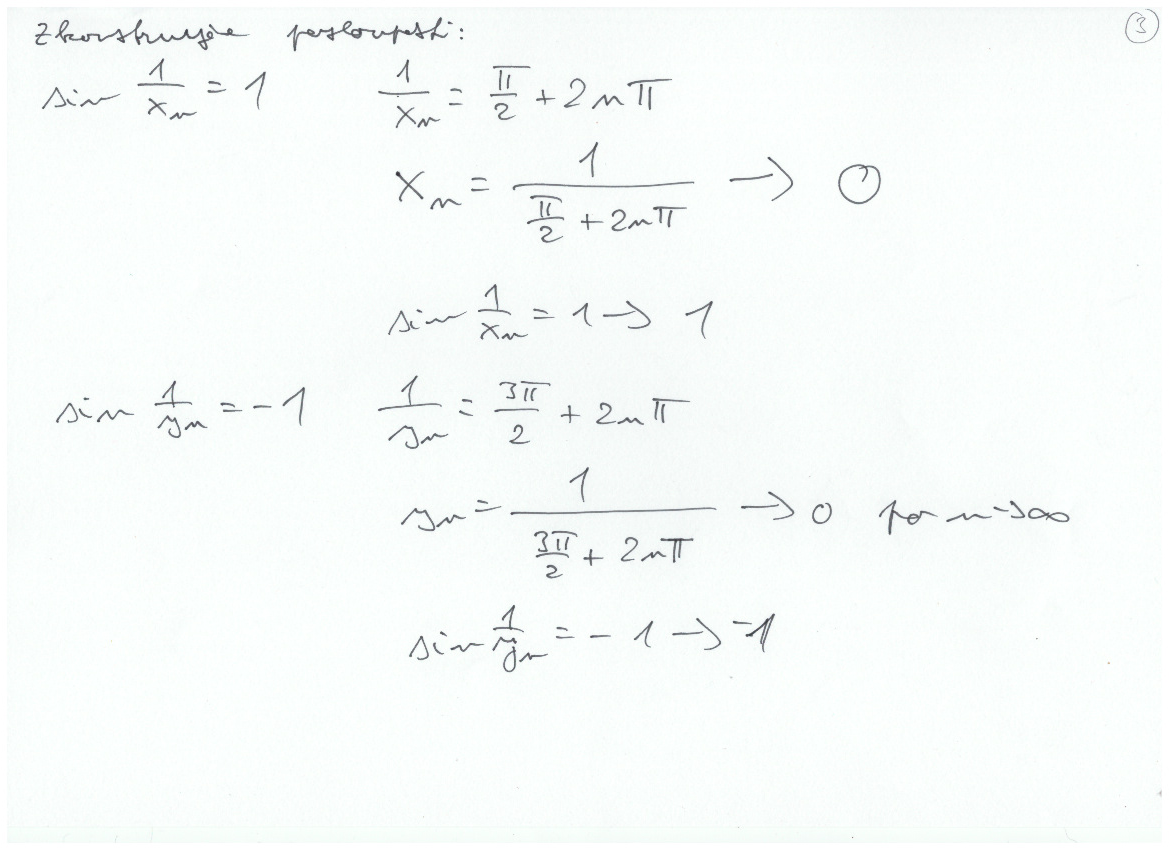 Zkonstruujme posloupnosti: 3
sin 1/xₙ = 1    1/xₙ = π/2 + 2nπ
xₙ = 1/(π/2 + 2nπ) → 0
sin 1/xₙ = 1 → 1
sin 1/yₙ = -1    1/yₙ = 3π/2 + 2nπ
yₙ = 1/(3π/2 + 2nπ) → 0 pro n→∞
sin 1/yₙ = -1 → -1